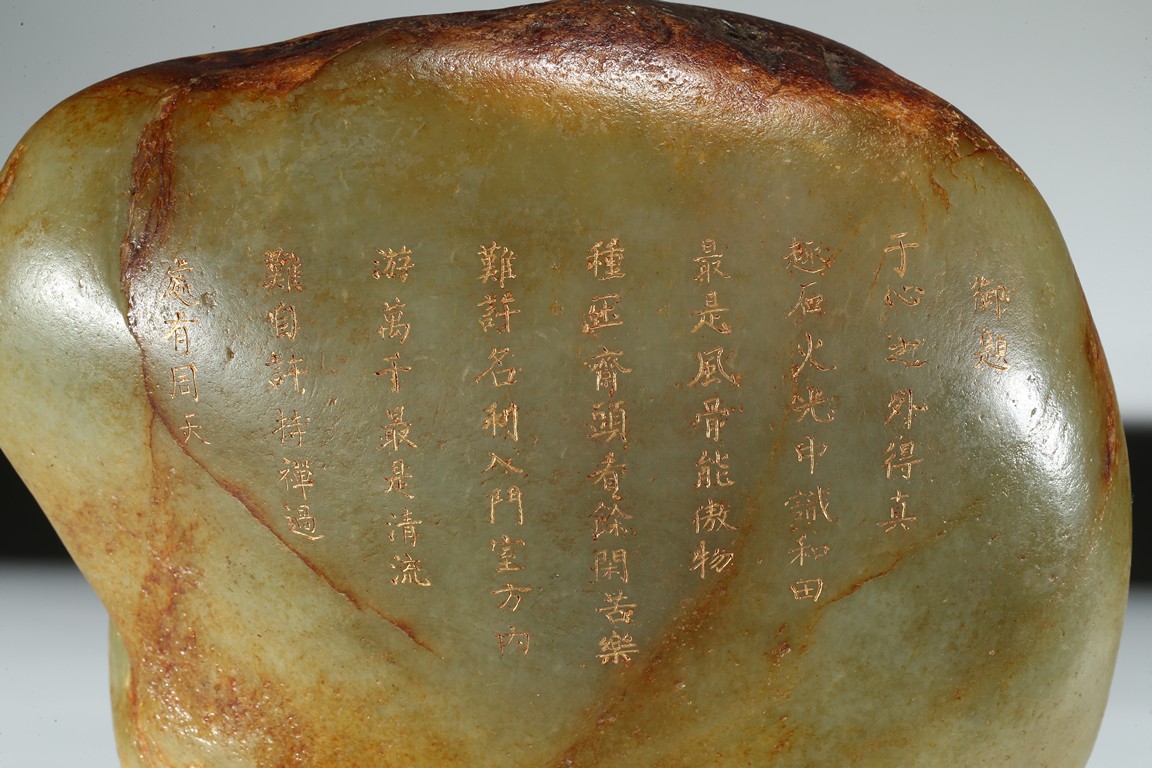 御題
于心之外得真
趣石火光中識和田
最是風骨能傲物
種匨齋頭看餘閑若樂
難許名利入門室方內
游萬千最是清流
難自許持禪過
處有同天